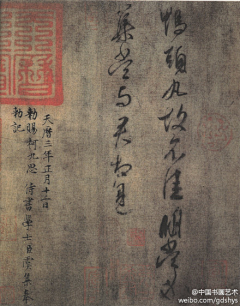 鸭頭丸故不佳明當必
集當與君相見
天曆三年正月十二日
勑賜柯九思侍書學士臣虞集奉
勑記
@中国书画艺术
weibo.com/gdshys